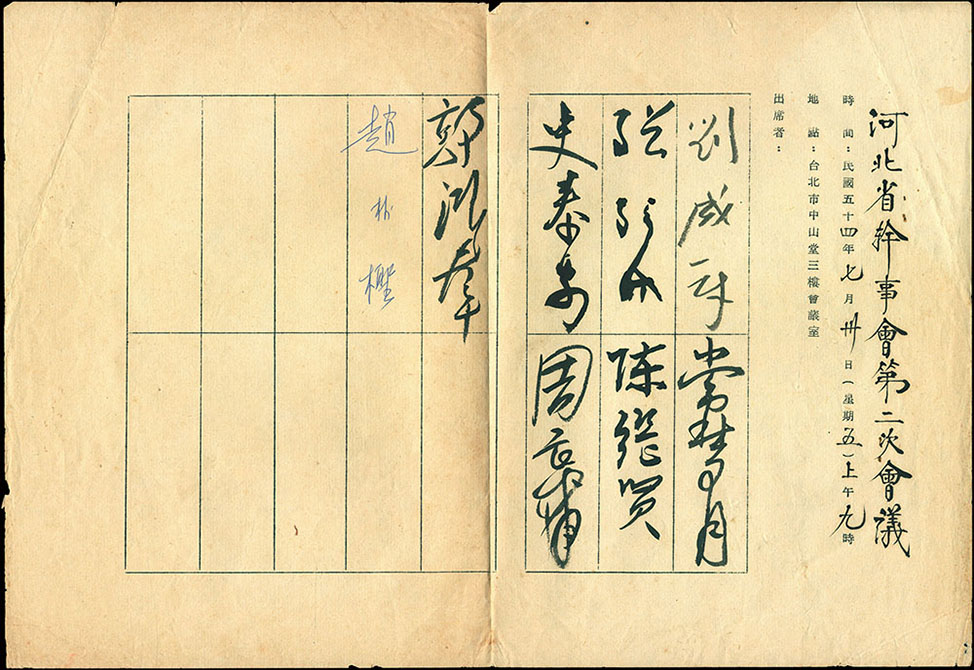 河北省幹事會第二次會議
時間：民國五十四年七月卅日（星期五）上午九時
地點：台北市中山堂三樓會議室
出席者：
劉成
陳繼賢
史泰安
周
郭鴻羣
趙